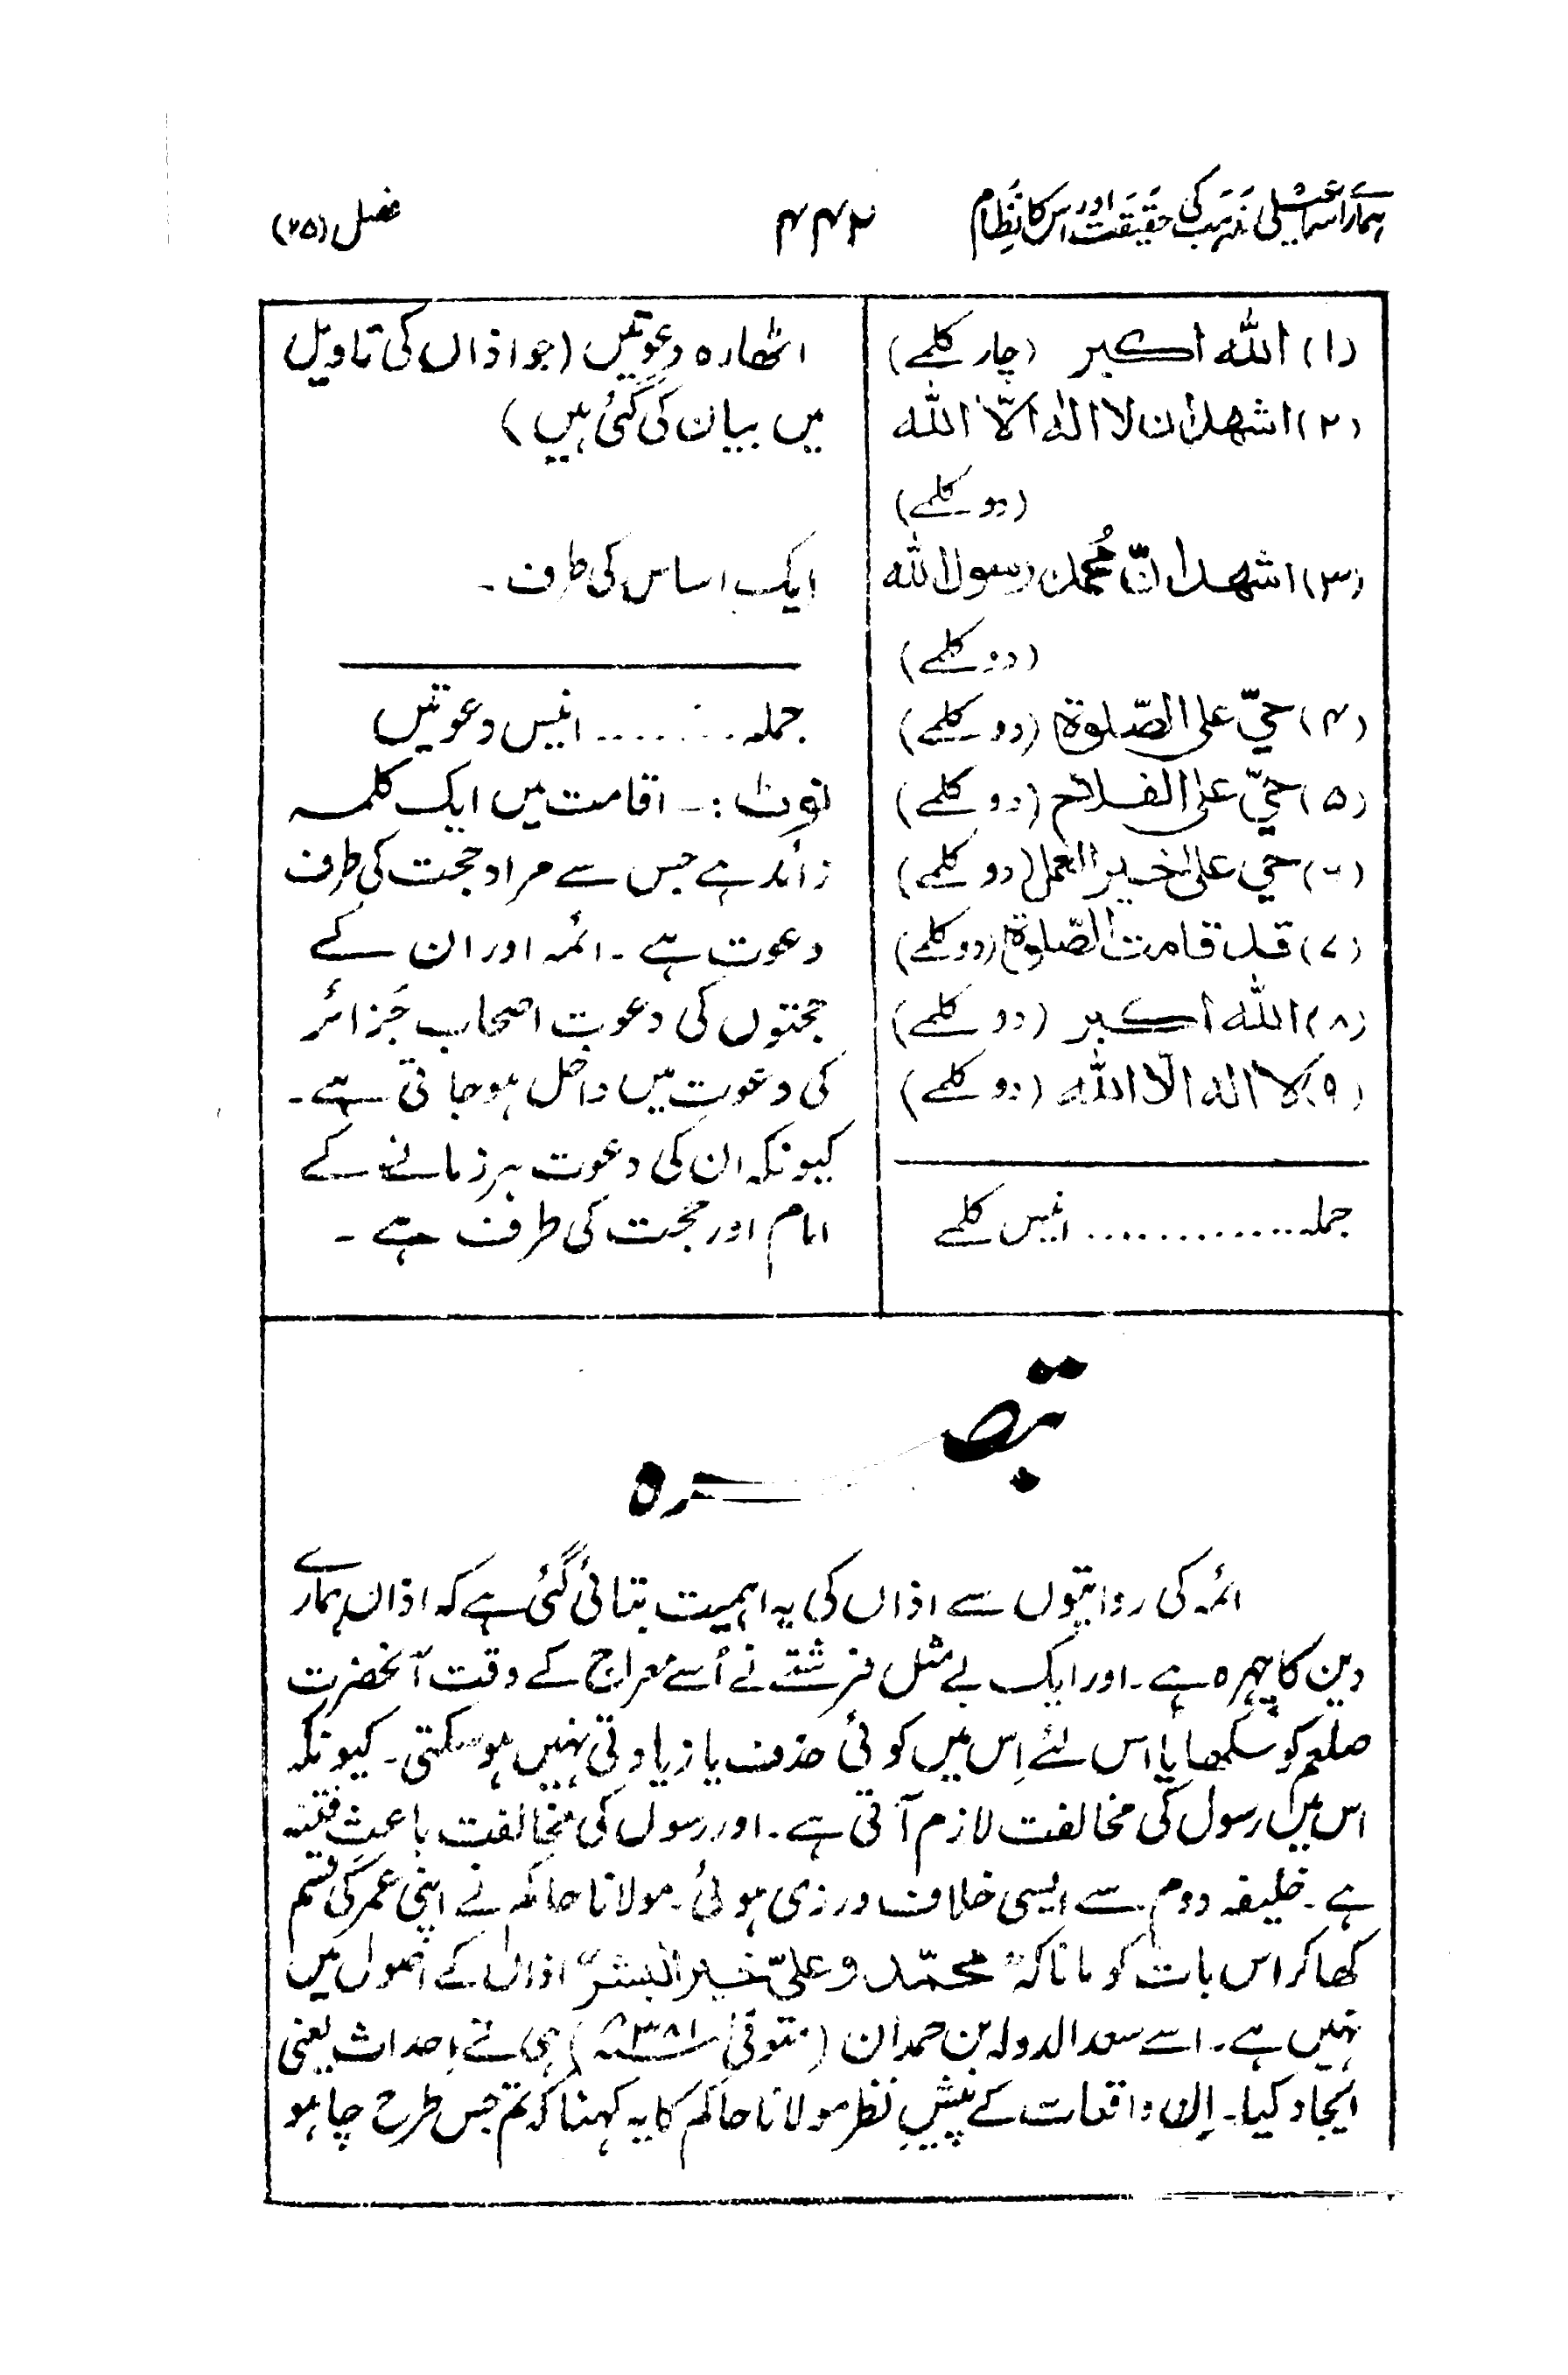 ہمارے اسماعیلی مذہب کی حقیقت اور اس کا نظام
۴۴۲
فصل (۲۵)
(۱) اللہ اکبر (چار کلمے)
(۲) اشھد ان لا الہ الّا اللہ
(دو کلمے)
(۳) اشھد انّ مُحمد رسول اللہ
(دو کلمے)
(۴) حیّ علی الصّلوۃ (دو کلمے)
(۵) حیّ علی الفلاح (دو کلمے)
(۶) حی علیٰ خیر العمل (دو کلمے)
(۷) قد قامت الصّلوۃ (دو کلمے)
(۸) اللہ اکبر (دو کلمے)
(۹) لا الہ الّا اللہ (دو کلمے)
جملہ ............ انیس کلمے
اٹھارہ دعوتیں (جو اذاں کی تاویل
میں بیان کی گئی ہیں)
ایک اساس کی طرف ۔
جملہ ....... انیس دعوتیں
نوٹ :۔ اقامت میں ایک کلمہ
زائد ہے جس سے مراد حجت کی طرف
دعوت ہے ۔ ائمہ اور ان کے
حجتوں کی دعوت اصحاب جَزائر
کی دعوت میں داخل ہو جاتی ہے ۔
کیونکہ ان کی دعوت ہر زمانے کے
امام اور حجت کی طرف ہے ۔
تبصرہ
ائمہ کی روایتوں سے اذاں کی یہ اہمیت بتائی گئی ہے کہ اذان ہمارے
دین کا چہرہ ہے ۔ اور ایک بے مثل فرشتے نے اُسے معراج کے وقت آنحضرت
صلعم کو سکھایا اس لئے اِس میں کوئی حذف یا زیادتی نہیں ہو سکتی ۔ کیونکہ
اس میں رسول کی مخالفت لازم آتی ہے ۔ اور رسول کی مخالفت باعثِ فتنہ
ہے ۔ خلیفہ دوم سے ایسی خلاف ورزی ہوئی ۔ مولانا حاکم نے اپنی عمر کی قسم
کھا کر اس بات کو مانا کہ "محمّد و علیّ خیر البشر" اذاں کے اصول میں
نہیں ہے ۔ اسے سعد الدولہ بن حمدان (متوفیٰ ۳۸۱ھ) ہی نے اِحداث یعنی
ایجاد کیا ۔ اِن واقعات کے پیشِ نظر مولانا حاکم کا یہ کہنا کہ تم جس طرح چاہو